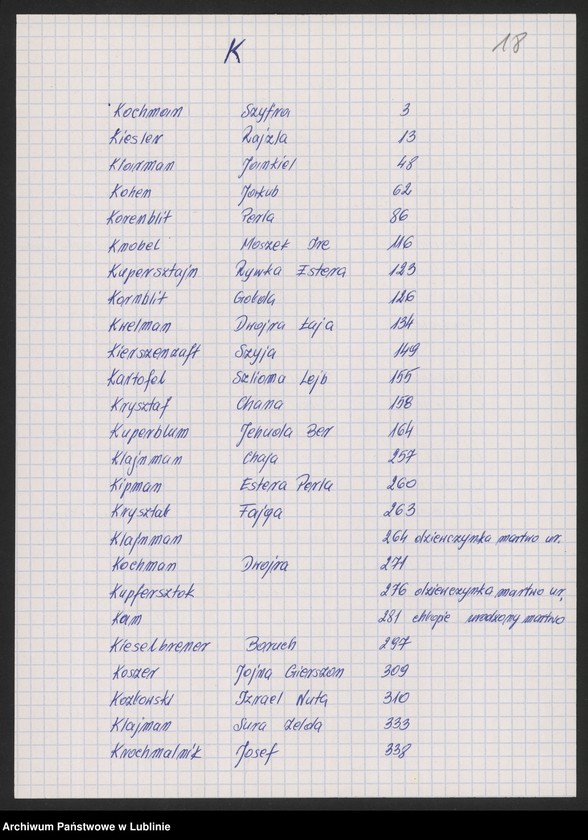 K
18
Kochman Szyfra 3
Kiesler Rajzla 13
Klairman Jainkiel 48
Kohen Jakub 62
Korenblit Perla 86
Knobel Moszek Ire 116
Kupersztajn Rywka Estera 123
Kornblit Gołda 126
Kwelman Dwojra Łaja 134
Kierszenzaft Szyja 149
Kartofel Szlioma Lejb 155
Krysztaf Chana 158
Kuperblum Jehuda Ber 164
Klajnman Chaja 257
Kipman Estera Perla 260
Kryształ Fajga 263
Klajnman 264 dziewczynka martwo ur.
Kochman Dwojra 271
Kupfersztok 276 dziewczynka martwo ur.
Kam 281 chłopie urodzony martwo
Kieselbrener Boruch 297
Koszer Jojna Gierszon 309
Kozłowski Izrael Nuta 310
Klajman Sura Zelda 333
Krochmalnik Josef 338
Archiwum Państwowe w Lublinie